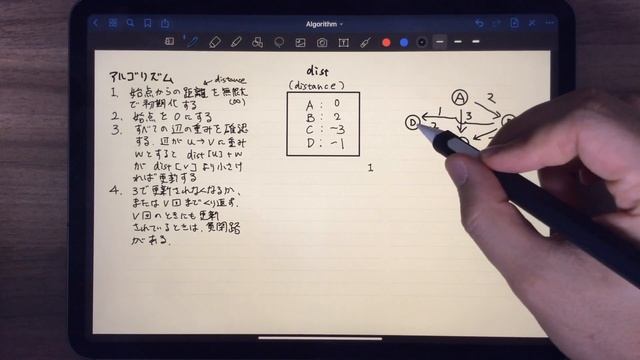 Algorithm
アルゴリズム
distance
1. 始点からの距離を無限大
(∞)
で初期化する
2. 始点を0にする
3. すべての辺の重みを確認
する. 辺が u→v に重み
w とすると dist[u]+w
が dist[v] より小さけ
れば更新する
4. 3で更新されなくなるか、
または V回までくり返す.
V回のときにも更新
されているときは、負閉路
がある.
dist
(distance)
A : 0
B : 2
C : -3
D : -1
1
A
2
1
3
D